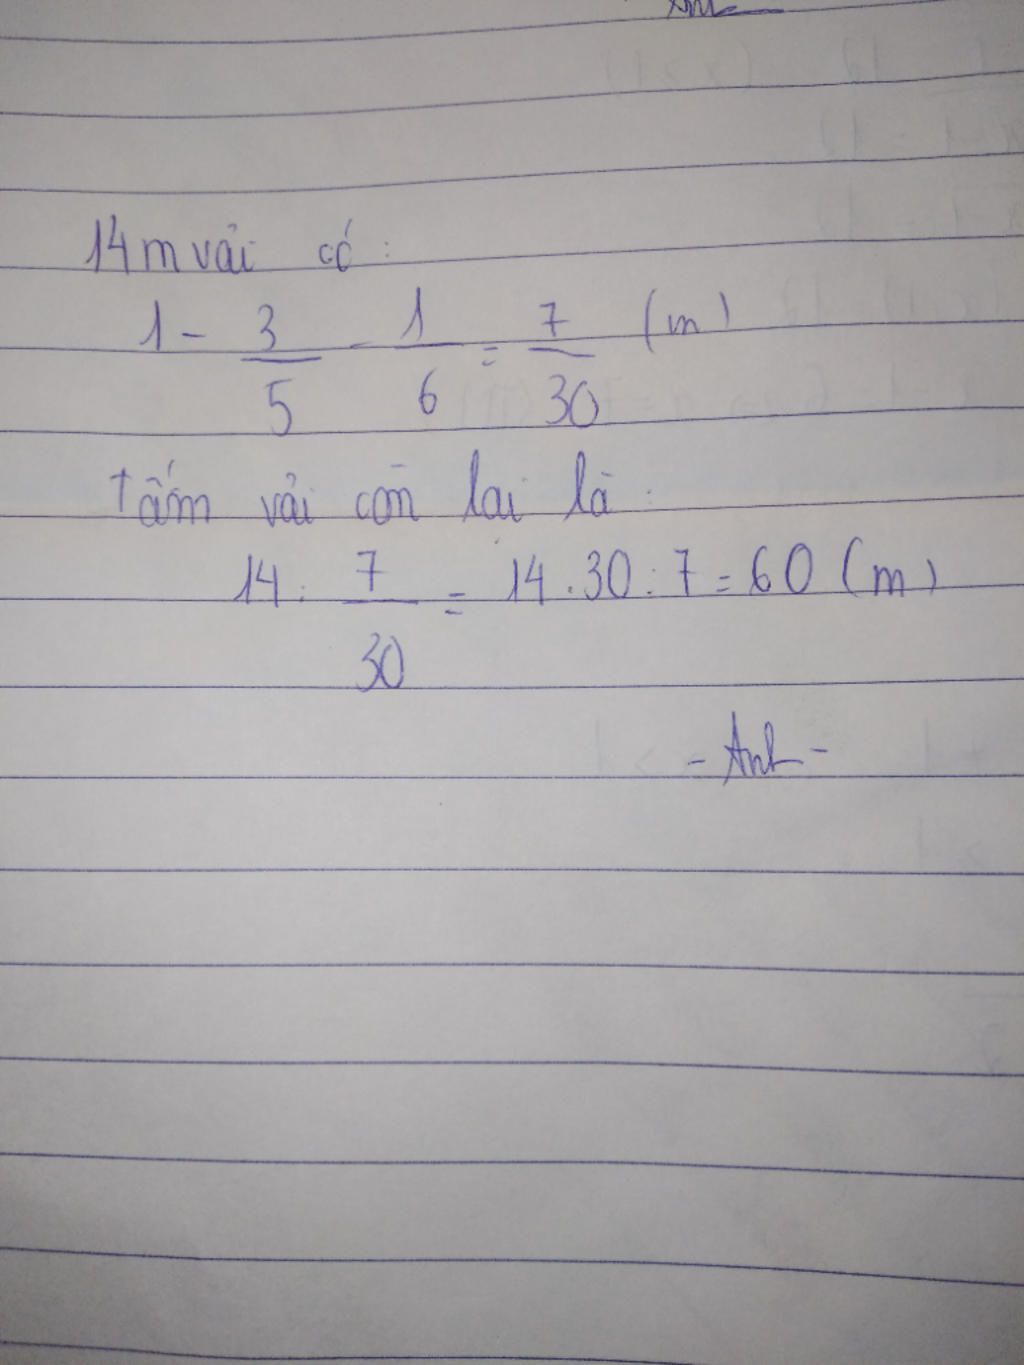 14m vải có:
1 - 3/5 - 1/6 = 7/30 (m)
Tấm vải còn lai là:
14 : 7/30 = 14.30:7=60 (m)
- Anh -